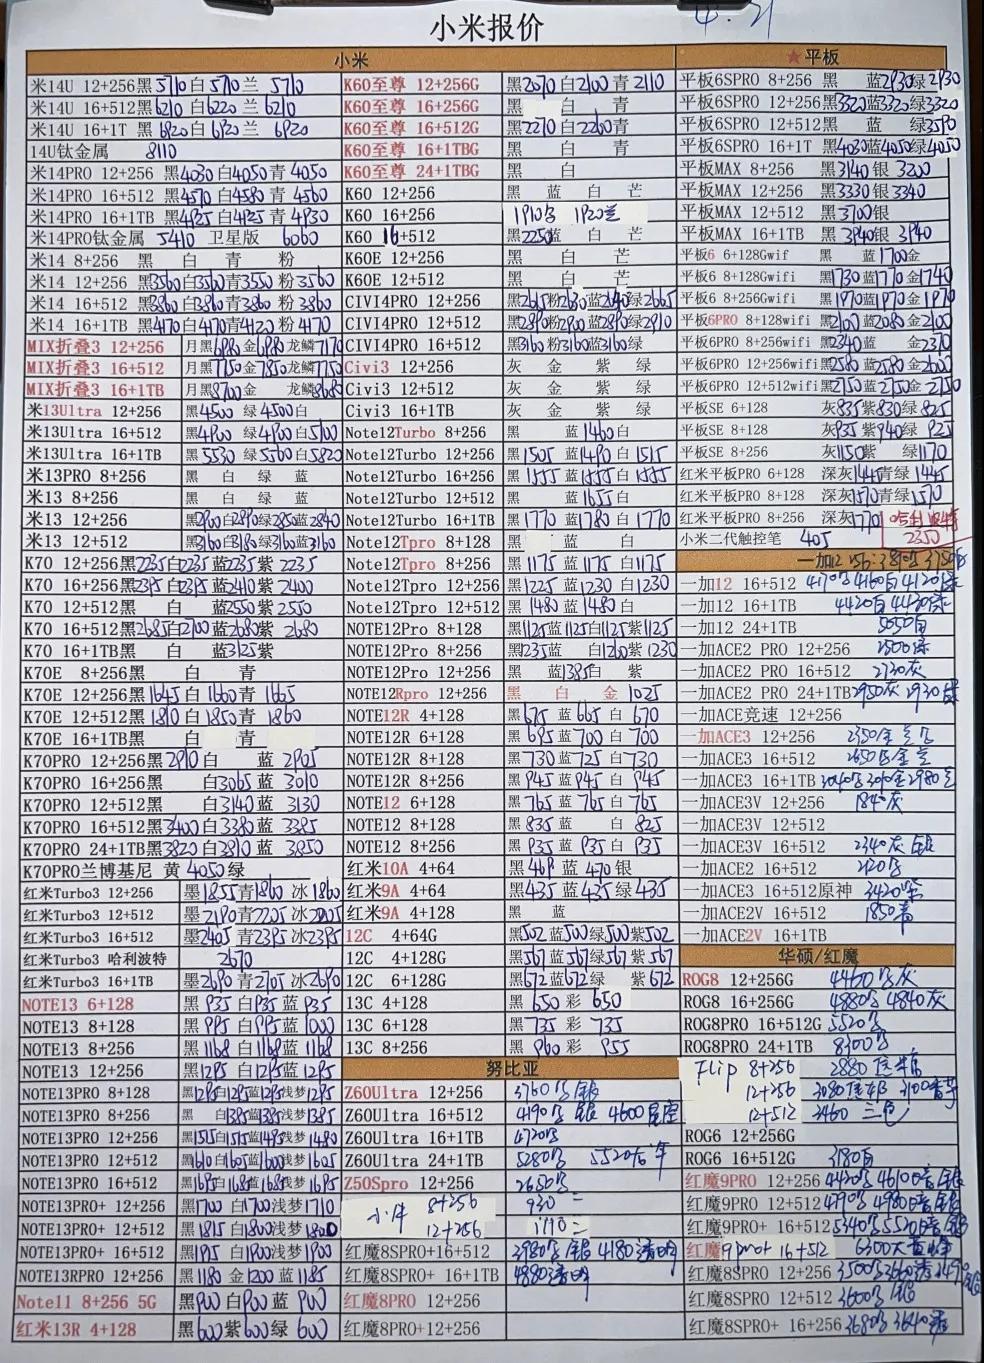 4.21
小米报价
小米
★平板
米14U 12+256 黑5710白5710兰 5710
米14U 16+512 黑6210白6220兰 6210
米14U 16+1T 黑6920白6920兰 6920
14U钛金属 8110
米14PRO 12+256 黑4030白4050青 4050
米14PRO 16+512 黑4570白4580青 4560
米14PRO 16+1TB 黑4925白4925青 4930
米14PRO钛金属 5410 卫星版 6060
米14 8+256 黑 白 青 粉
米14 12+256 黑3560白3560青3550粉3560
米14 16+512 黑3860白3860青3860粉3860
米14 16+1TB 黑4170白4170青4120粉4170
MIX折叠3 12+256 月黑6980金6980龙鳞7170
MIX折叠3 16+512 月黑7750金7850龙鳞7750
MIX折叠3 16+1TB 月黑8700金 龙鳞8680
米13Ultra 12+256 黑4500 绿4500白
米13Ultra 16+512 黑4900 绿4900白5100
米13Ultra 16+1TB 黑5530 绿5560白5820
米13PRO 8+256 黑 白 绿 蓝
米13 8+256 黑 白 绿 蓝
米13 12+256 黑2900白2890绿2850蓝2840
米13 12+512 黑3160白3180绿3160蓝3160
K70 12+256黑2235白2235蓝2235紫 2235
K70 16+256黑2395白2395蓝2410紫 2400
K70 12+512黑 白 蓝2550紫 2550
K70 16+512黑2685白2700蓝2680紫 2680
K70 16+1TB黑 白 蓝3125紫
K70E 8+256黑 白 青
K70E 12+256黑1645白1660青 1665
K70E 12+512黑1810白1850青 1860
K70E 16+1TB黑 白 青
K70PRO 12+256黑2910白 蓝 2905
K70PRO 16+256黑 白3065蓝 3010
K70PRO 12+512黑 白3140蓝 3130
K70PRO 16+512黑3400白3380蓝 3385
K70PRO 24+1TB黑3820白3810蓝 3850
K70PRO兰博基尼 黄 4050绿
红米Turbo3 12+256 墨1855青1860冰1860
红米Turbo3 12+512 墨2190青2205冰2205
红米Turbo3 16+512 墨2405青2395冰2395
红米Turbo3 哈利波特 2670
红米Turbo3 16+1TB 墨2690青2705冰2690
NOTE13 6+128 黑935白935蓝935
NOTE13 8+128 黑995白995蓝1000
NOTE13 8+256 黑1168白1168蓝1168
NOTE13 12+256 黑1295白1295蓝1295
NOTE13PRO 8+128 黑1295白1295蓝1295浅梦1295
NOTE13PRO 8+256 黑 白1385蓝1385浅梦1385
NOTE13PRO 12+256 黑1505白1515蓝1495浅梦1480
NOTE13PRO 12+512 黑1610白1605蓝1600浅梦1605
NOTE13PRO 16+512 黑1695白1685蓝1685浅梦1695
NOTE13PRO+ 12+256 黑1700 白1700浅梦1710
NOTE13PRO+ 12+512 黑1815 白1800浅梦1800
NOTE13PRO+ 16+512 黑1915 白1900浅梦1900
NOTE13RPRO 12+256 黑1180 金1200 蓝1185
Note11 8+256 5G 黑900 白900蓝 900
红米13R 4+128 黑600紫600绿 600
K60至尊 12+256G 黑2070白2100青2110
K60至尊 16+256G 白 青
K60至尊 16+512G 黑2270白2260青
K60至尊 16+1TBG 黑 白 青
K60至尊 24+1TBG 黑 白
K60 12+256 黑 蓝 白 芒
K60 16+256 1910白 1920兰
K60 16+512 黑2250蓝 白 芒
K60E 12+256 黑 白 芒
K60E 12+512 黑 白 芒
CIVI4PRO 12+256 黑2615粉2630蓝2640绿2665
CIVI4PRO 12+512 黑2890粉2900蓝2890绿2910
CIVI4PRO 16+512 黑3160粉3160蓝3160绿
Civi3 12+256 灰 金 紫 绿
Civi3 12+512 灰 金 紫 绿
Civi3 16+1TB 灰 金 紫 绿
Note12Turbo 8+256 黑 蓝1460白
Note12Turbo 12+256 黑1505 蓝1490白 1515
Note12Turbo 16+256 黑1555 蓝1555白 1555
Note12Turbo 12+512 黑 蓝1655白
Note12Turbo 16+1TB 黑1770 蓝1780白 1770
Note12Tpro 8+128 黑 蓝 白
Note12Tpro 8+256 黑1175蓝 1175 白1175
Note12Tpro 12+256 黑1225蓝 1230 白1230
Note12Tpro 12+512 黑1480蓝1480 白
NOTE12Pro 8+128 黑1125蓝1125白1125紫1125
NOTE12Pro 8+256 黑1235蓝 白1260紫1230
NOTE12Pro 12+256 黑 蓝1385白 紫
NOTE12Rpro 12+256 黑 白 金 1025
NOTE12R 4+128 黑675 蓝665 白 670
NOTE12R 6+128 黑695蓝700 白 700
NOTE12R 8+128 黑730蓝725 白730
NOTE12R 8+256 黑945蓝945 白 945
NOTE12 6+128 黑765 蓝765 白765
NOTE12 8+128 黑835 蓝 白 825
NOTE12 8+256 黑935 蓝935 白 935
红米10A 4+64 黑469 蓝470银
红米9A 4+64 黑435 蓝435 绿435
红米9A 4+128 黑 蓝
12C 4+64G 黑502蓝500绿500紫502
12C 4+128G 黑567蓝567绿567紫567
12C 6+128G 黑672蓝672绿 紫672
13C 4+128 黑 650 彩 650
13C 6+128 黑 735 彩 735
13C 8+256 黑 960 彩 955
努比亚
Z60Ultra 12+256 3760 银
Z60Ultra 16+512 4190 银 4600星空
Z60Ultra 16+1TB 4720
Z60Ultra 24+1TB 5280 5520
Z50Spro 12+256 2650
小牛 8+256 930 二
12+256 1110 二
红魔8SPRO+16+512 3980 银 4180透明
红魔8SPRO+ 16+1TB 4880透明
红魔8PRO 12+256
红魔8PRO+12+256
平板6SPRO 8+256 黑 蓝2930绿2930
平板6SPRO 12+256黑3320蓝3320绿3320
平板6SPRO 12+512黑 蓝 绿3590
平板6SPRO 16+1T 黑4030蓝4050绿4050
平板MAX 8+256 黑3140银 3200
平板MAX 12+256 黑3330银 3340
平板MAX 12+512 黑3700银
平板MAX 16+1TB 黑3940银 3940
平板6 6+128Gwif 黑 蓝1700金
平板6 8+128Gwifi 黑1730蓝1770金1740
平板6 8+256Gwifi 黑1970蓝1970金1970
平板6PRO 8+128wifi 黑2100蓝2080金2100
平板6PRO 8+256wifi 黑2340蓝 金2370
平板6PRO 12+256wifi黑2580蓝2580金2600
平板6PRO 12+512wifi黑2750蓝2750金2750
平板SE 6+128 灰835紫830绿 825
平板SE 8+128 灰935紫940绿 925
平板SE 8+256 灰1150紫 绿1170
红米平板PRO 6+128 深灰1445青绿1445
红米平板PRO 8+128 深灰1570青绿1570
红米平板PRO 8+256 深灰1770 哈利波特
小米二代触控笔 405 2350
一加12
一加12 16+512 4170 4160白 4120绿
一加12 16+1TB 4420白 4420绿
一加12 24+1TB 5050白
一加ACE2 PRO 12+256 2500绿
一加ACE2 PRO 16+512 2730灰
一加ACE2 PRO 24+1TB 2950灰 2930绿
一加ACE竞速 12+256
一加ACE3 12+256 2350金
一加ACE3 16+512 2650 金
一加ACE3 16+1TB 3040 3010金2980
一加ACE3V 12+256 1840灰
一加ACE3V 12+512
一加ACE3V 16+512 2340灰 银
一加ACE2 16+512 2120
一加ACE3 16+512原神 3420紫
一加ACE2V 16+512 1850青
一加ACE2V 16+1TB
华硕/红魔
ROG8 12+256G 4460 灰
ROG8 16+256G 4880 4840灰
ROG8PRO 16+512G 5520
ROG8PRO 24+1TB 8300
Flip 8+256 2880
12+256 3080
12+512 3460 三色
ROG6 12+256G
ROG6 16+512G 3180白
红魔9PRO 12+256
红魔9PRO 12+512
红魔9PRO+ 16+512
红魔9pro+ 16+512 6300大黄蜂
红魔8SPRO 12+256
红魔8SPRO 12+512 3600 银
红魔8SPRO+ 16+256 3680 3640透